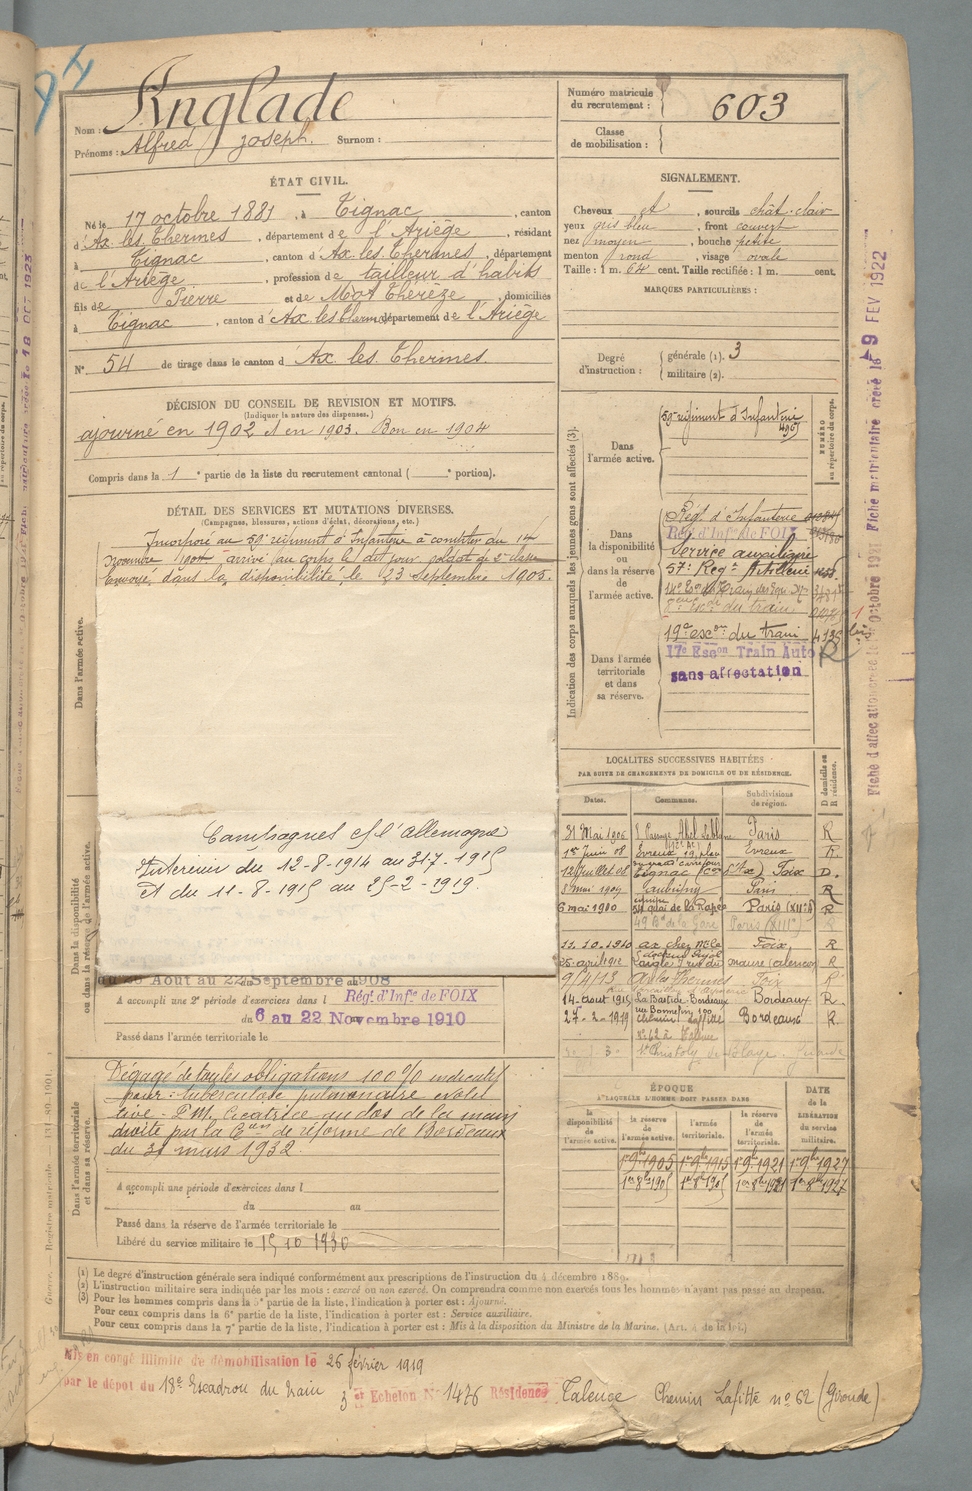 Nom : Anglade
Prénoms : Alfred Joseph. Surnom :
Numéro matricule du recrutement : 603
Classe de mobilisation :
ÉTAT CIVIL.
Né le 17 octobre 1881, à Tignac, canton
d'Ax les Thermes, département de l'Ariège, résidant
à Tignac, canton d'Ax les Thermes, département
de l'Ariège, profession de tailleur d'habits
fils de Pierre et de Mot Thérèze, domiciliés
à Tignac, canton d'Ax les Thermes département de l'Ariège
N° 54 de tirage dans le canton d'Ax les Thermes
SIGNALEMENT.
Cheveux et, sourcils chât. clair
yeux gris bleu, front couvert
nez moyen, bouche petite
menton rond, visage ovale
Taille : 1 m. 64 cent. Taille rectifiée : 1 m. cent.
MARQUES PARTICULIÈRES :
Degré d'instruction : générale (1). 3
militaire (2).
DÉCISION DU CONSEIL DE REVISION ET MOTIFS.
(Indiquer la nature des dispenses.)
ajourné en 1902 et en 1903. Bon en 1904
Compris dans la 1e partie de la liste du recrutement cantonal ( e portion).
DÉTAIL DES SERVICES ET MUTATIONS DIVERSES.
(Campagnes, blessures, actions d'éclat, décorations, etc.)
Incorporé au 59e régiment d'Infanterie à compter du 14
Novembre 1904 arrivé au corps le dit jour soldat de 2e classe
Envoyé dans la disponibilité le 23 Septembre 1905.
Dans l'armée active.
Campagnes cf l'allemagne
Intérieur du 12-8-1914 au 31-7-1915
et du 11-8-1915 au 25-2-1919.
Dans la disponibilité ou dans la réserve de l'armée active.
Août au 22 Septembre 1908
A accompli une 2e période d'exercices dans l Régt d'Infie de FOIX
du 6 au 22 Novembre 1910
Passé dans l'armée territoriale le
Dans l'armée territoriale et dans sa réserve.
Dégagé de toutes obligations 100% indicatif
pour : tuberculose pulmonaire
P.M. Cicatrice au dos de la main
droite par la Con de réforme de Bordeaux
du 31 mars 1932.
A accompli une période d'exercices dans l
du au
Passé dans la réserve de l'armée territoriale le
Libéré du service militaire le 15 10 1930
Indication des corps auxquels les jeunes gens sont affectés (3).
NUMÉRO au répertoire du corps.
Dans l'armée active. 59e régiment d'Infanterie
Dans la disponibilité ou dans la réserve de l'armée active.
Régt d'Infanterie
Régt d'Infie de FOIX
Service auxiliaire
57e Régt Artillerie
8e du train
Dans l'armée territoriale et dans sa réserve.
19e escon du train
17e Escon Train Auto R
sans affectation
LOCALITÉS SUCCESSIVES HABITÉES
PAR SUITE DE CHANGEMENTS DE DOMICILE OU DE RÉSIDENCE.
Dates. Communes. Subdivisions de région. D domicile ou R résidence.
31 Mai 1906 8 Passage Abel Leblanc Paris R
1er Juin 08 Evreux Evreux R.
12 Juillet 08 Tignac (con d'Ax) Foix D.
8 mai 1909 Paris R
6 mai 1910 quai de la Rapée Paris (XIIe) R
49 Bd de la Gare Paris (XIIIe) R
11.10.1910 ax chez Foix R
25 avril 1912 R
9/4/13 Ax les Thermes Foix R
14 août 1915 La Bastide-Bordeaux Bordeaux R
27-2-1919 Chemin Laffitte Bordeaux R.
n° 62 à Talence
St Christoly de Blaye. Gironde
ÉPOQUE
A LAQUELLE L'HOMME DOIT PASSER DANS
la disponibilité de l'armée active. la réserve de l'armée active. l'armée territoriale. la réserve de l'armée territoriale.
DATE de la LIBÉRATION du service militaire.
1er 9bre 1905 1er 9bre 1915 1er 9bre 1921 1er 9bre 1927
1er 8bre 1905 1er 8bre 1905 1er 8bre 1921 1er 8bre 1927
(1) Le degré d'instruction générale sera indiqué conformément aux prescriptions de l'instruction du 4 décembre 1889.
(2) L'instruction militaire sera indiquée par les mots : exercé ou non exercé. On comprendra comme non exercés tous les hommes n'ayant pas passé au drapeau.
(3) Pour les hommes compris dans la 5e partie de la liste, l'indication à porter est : Ajourné.
Pour ceux compris dans la 6e partie de la liste, l'indication à porter est : Service auxiliaire.
Pour ceux compris dans la 7e partie de la liste, l'indication à porter est : Mis à la disposition du Ministre de la Marine. (Art. 4 de la loi.)
Mis en congé illimité de démobilisation le 26 février 1919
par le dépôt du 18e Escadron du train
3e Echelon N° 1476 Résidence Talence Chemin Lafitte n° 62 (Gironde)